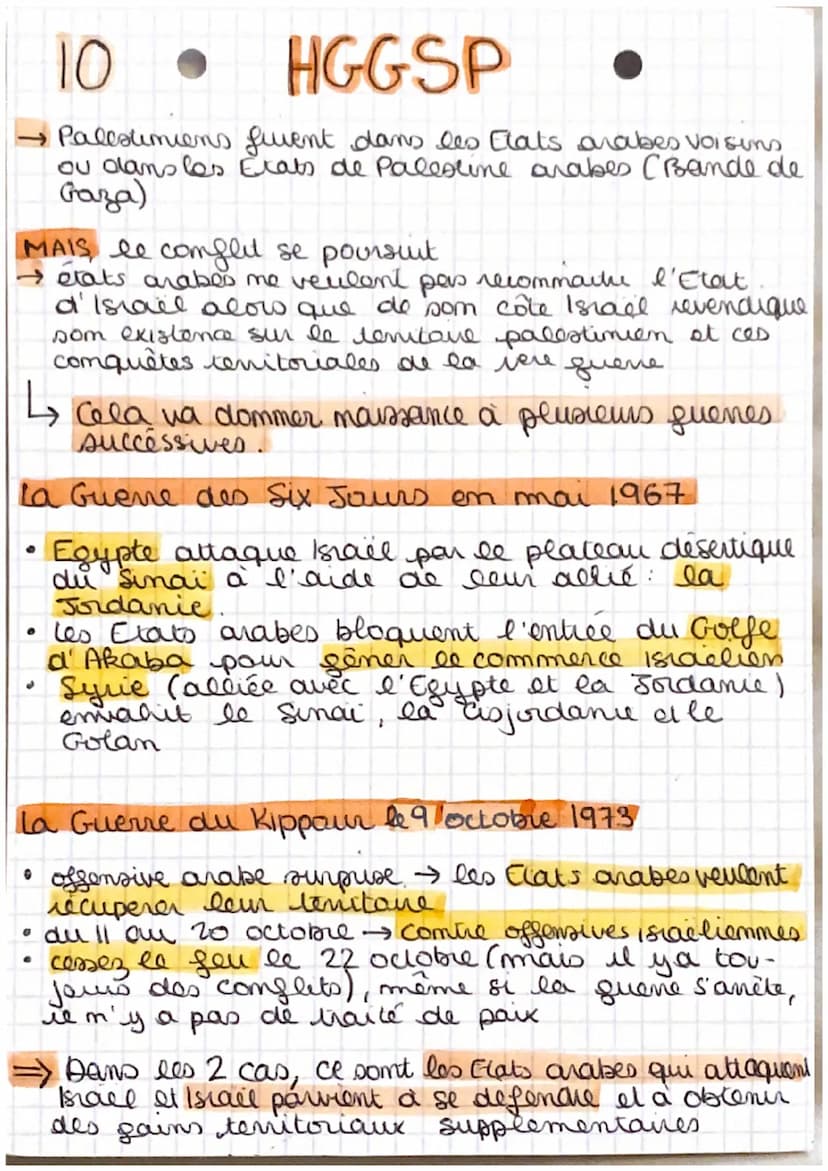 10 HGGSP
→ Palestiniens fuient dans les Etats arabes voisins
ou dans les Etats de Palestine arabes (Bande de
Gaza)
MAIS, le conflit se poursuit
→ états arabes ne veulent pas reconnaitre l'Etat
d'Israël alors que de son côte Israël revendique
son existence sur le territoire palestinien et ces
conquêtes territoriales de la 1ere guerre
↳ Cela va donner naissance à plusieurs guerres
successives.
La Guerre des Six Jours en mai 1967
• Egypte attaque Israël par le plateau désertique
du Sinaï à l'aide de leur allié : la
Jordanie.
• Les Etats arabes bloquent l'entrée du Golfe
d'Akaba pour gêner le commerce israélien
• Syrie (alliée avec l'Egypte et la Jordanie)
envahit le Sinaï, la Cisjordanie et le
Golan
La Guerre du Kippour le 9 octobre 1973
• offensive arabe surprise → les Etats arabes veulent
récuperer leur territoire
• du 11 au 20 octobre → contre offensives israëliennes
• cessez le feu le 22 octobre (mais il y a tou-
jours des conflits), même si la guerre s'arrête,
il n'y a pas de traité de paix
⇒ Dans les 2 cas, ce sont les Etats arabes qui attaquent
Israël et Israël parvient à se défendre et à obtenir
des gains territoriaux supplémentaires